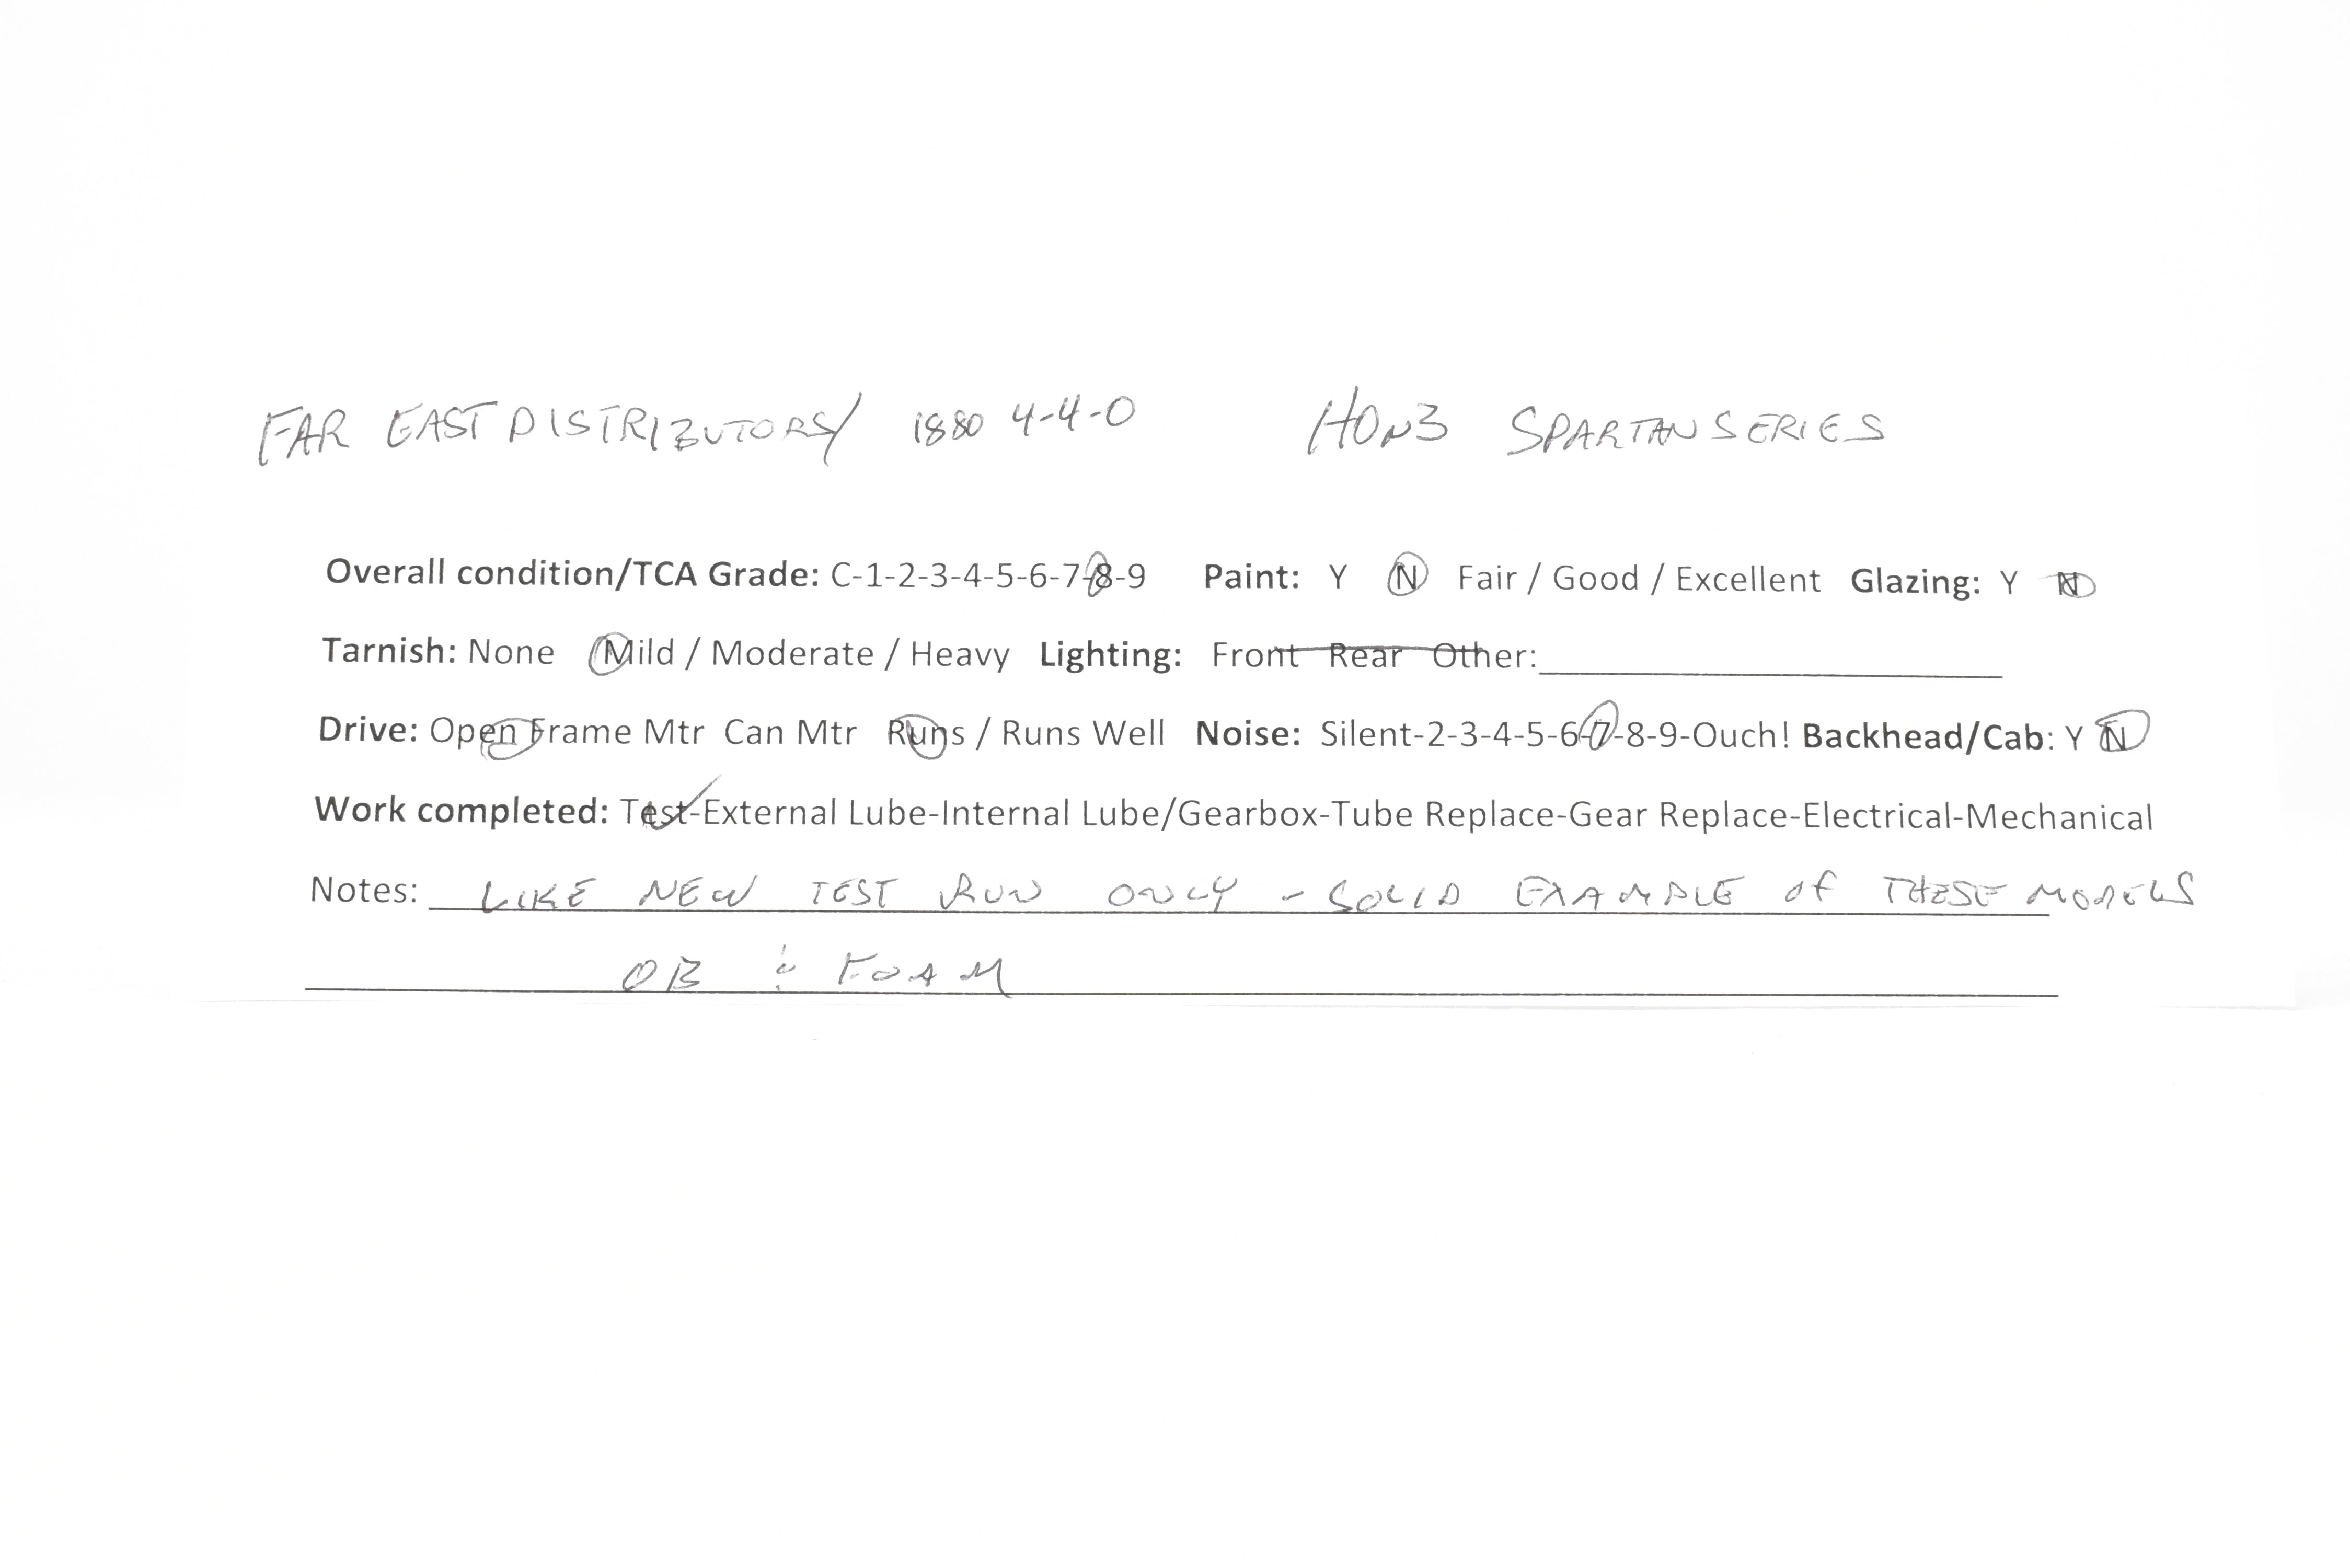 FAR EAST DISTRIBUTORS/ 1880 4-4-0 HOn3 SPARTAN SERIES
Overall condition/TCA Grade: C-1-2-3-4-5-6-7-8-9 Paint: Y N Fair / Good / Excellent Glazing: Y N
Tarnish: None Mild / Moderate / Heavy Lighting: Front Rear Other:
Drive: Open Frame Mtr Can Mtr Runs / Runs Well Noise: Silent-2-3-4-5-6-7-8-9-Ouch! Backhead/Cab: Y N
Work completed: Test-External Lube-Internal Lube/Gearbox-Tube Replace-Gear Replace-Electrical-Mechanical
Notes: LIKE NEW TEST RUN ONLY - SOLID EXAMPLE of THESE MODELS
OB & FOAM